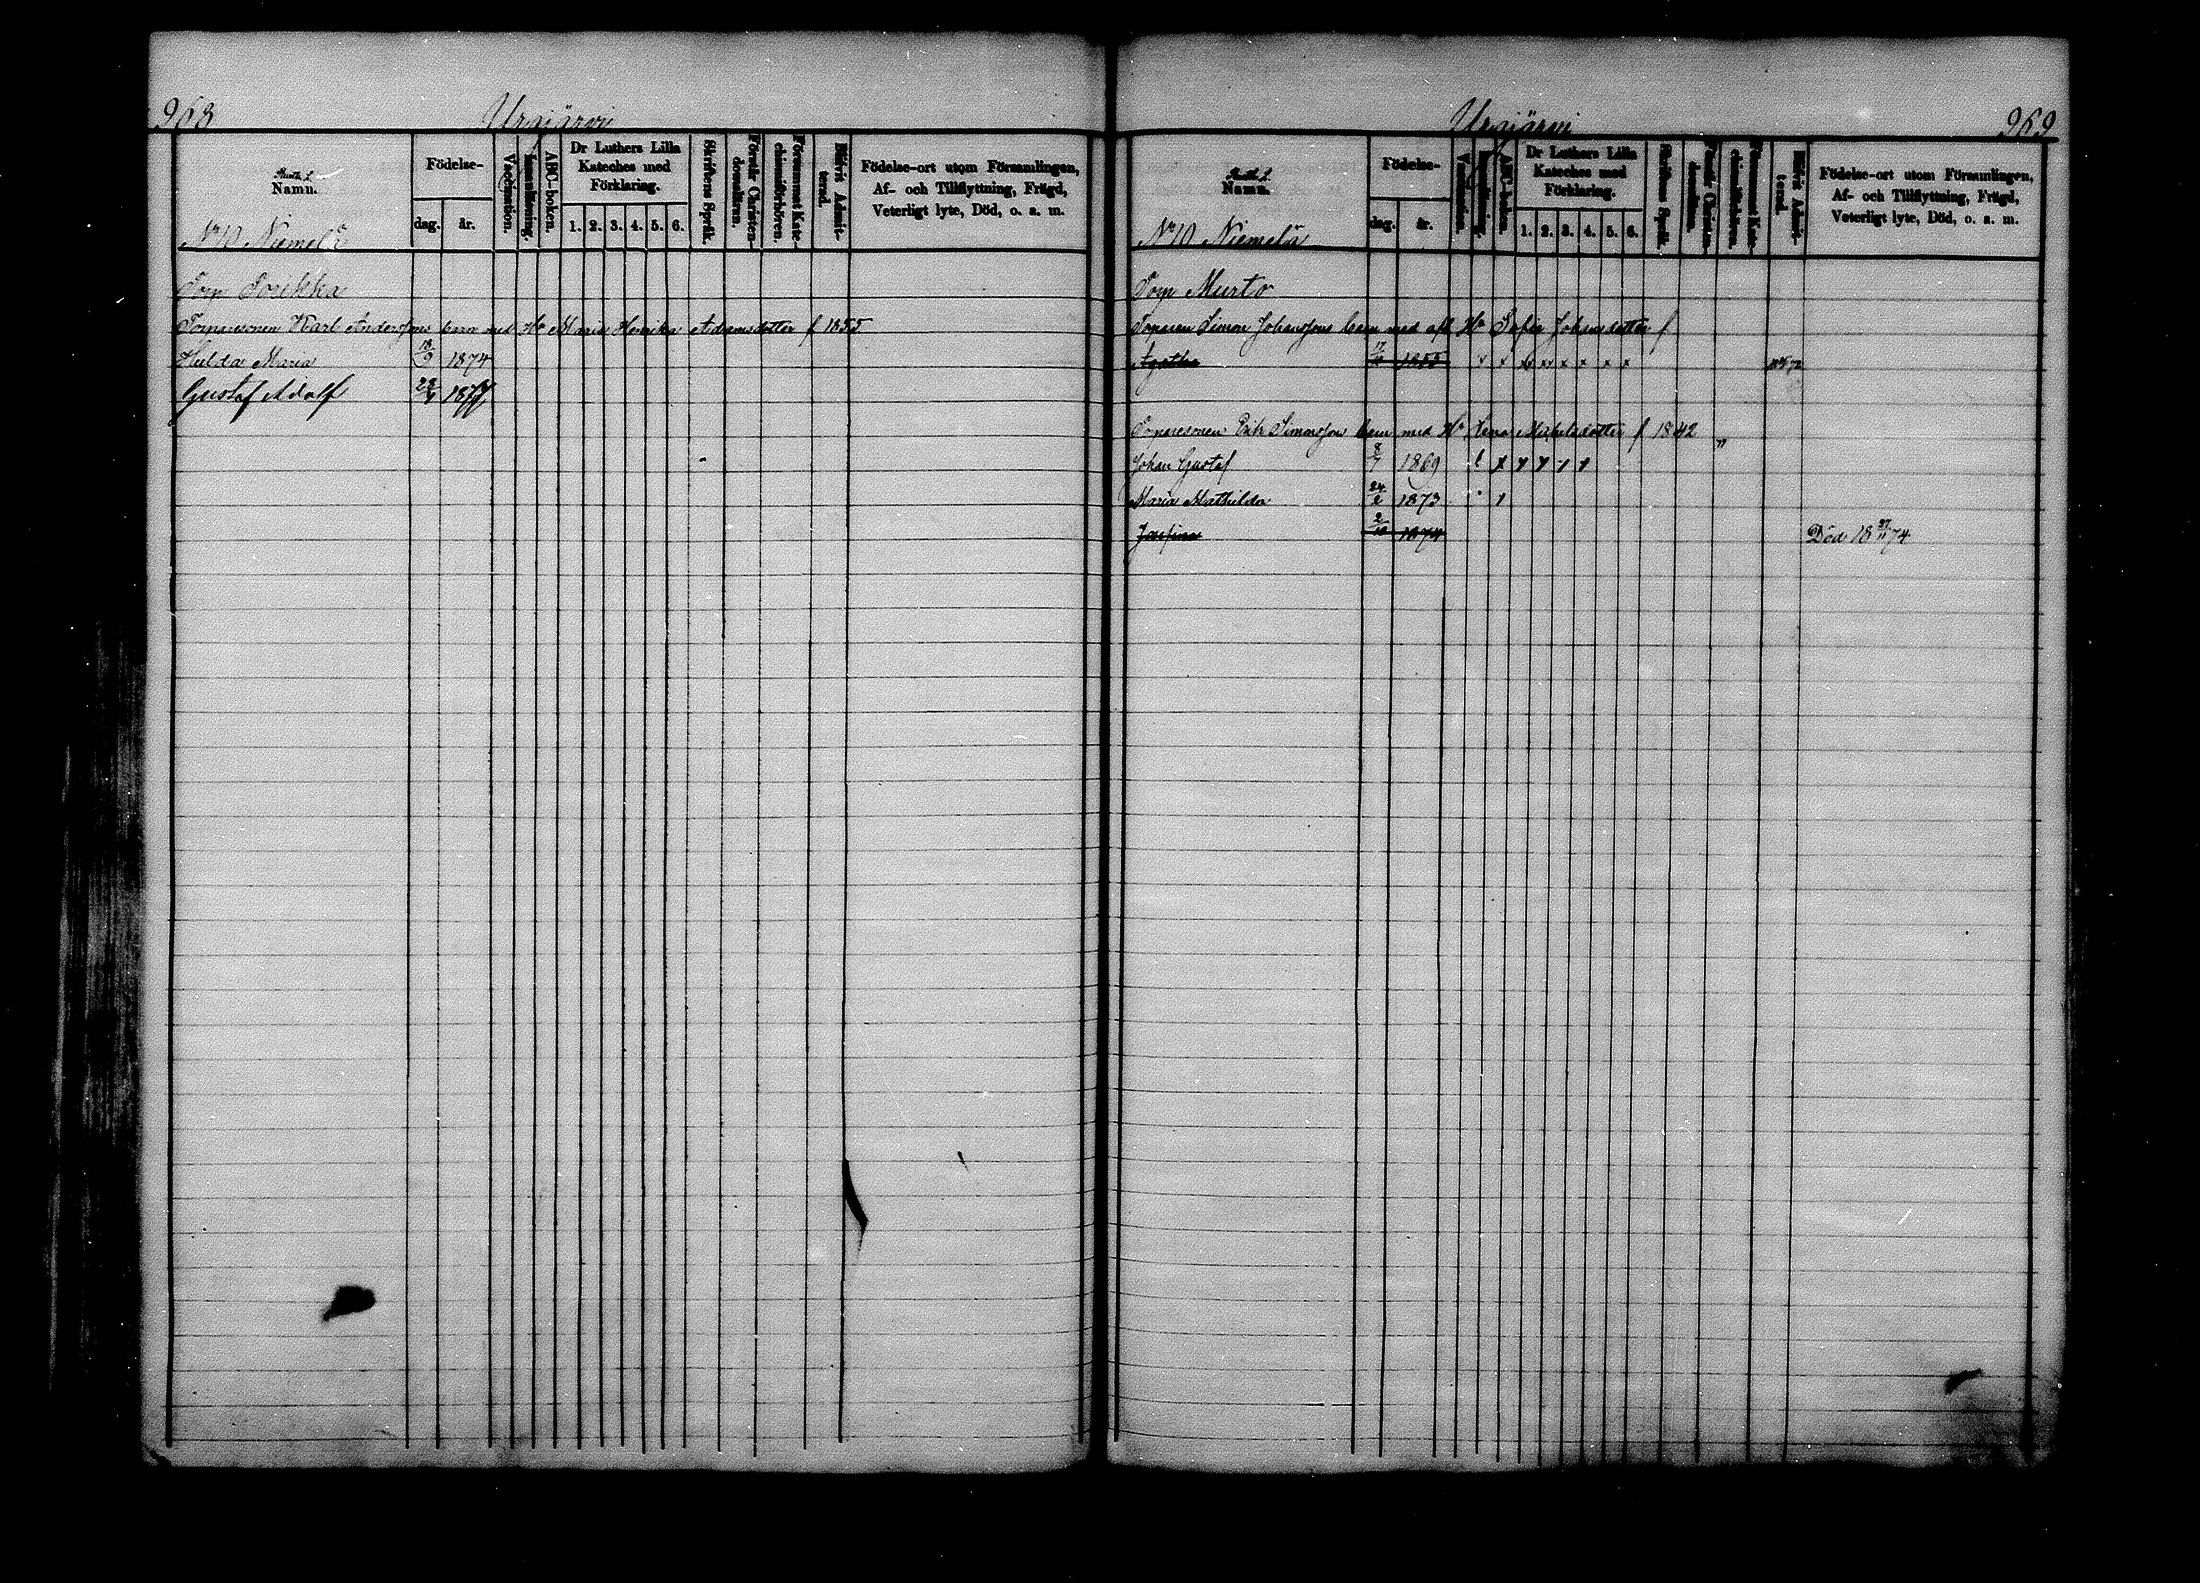 968
Urajärvi
Namn.
Födelse-
dag.
år.
Vaccination.
Innanläsning.
ABC-boken.
Dr Luthers Lilla
Kateches med
Förklaring.
1. 2. 3. 4. 5. 6.
Skriftens Språk.
Förstår Christen-
domsläran.
Försummat Kate-
chismiförhören.
Blifvit Admit-
terad.
Födelse-ort utom Församlingen,
Af- och Tillflyttning, Frägd,
Veterligt lyte, Död, o. a. m.
No 10 Niemelä
Torp
Torparesonen Karl Anderssons barn med Hu Maria Henrika Adamsdotter f 1855
Hulda Maria 1874
Gustaf Adolf 1877
Urajärvi
969
Namn.
Födelse-
dag.
år.
Vaccination.
Innanläsning.
ABC-boken.
Dr Luthers Lilla
Kateches med
Förklaring.
1. 2. 3. 4. 5. 6.
Skriftens Språk.
Förstår Christen-
domsläran.
Försummat Kate-
chismiförhören.
Blifvit Admit-
terad.
Födelse-ort utom Församlingen,
Af- och Tillflyttning, Frägd,
Veterligt lyte, Död, o. a. m.
No 10 Niemelä
Torp Murto
Torparen Simon Johanssons barn med afl Hu Sofia Johansdotter f
Agatha 1855 x x x x x x x x
Torparesonen Erik Simonsson barn med Hu Lena Mickelsdotter f 1842 "
Johan Gustaf 1869
Maria Mathilda 24/2 1873
Josefina 2/10 1874 Död 18 27/11 74